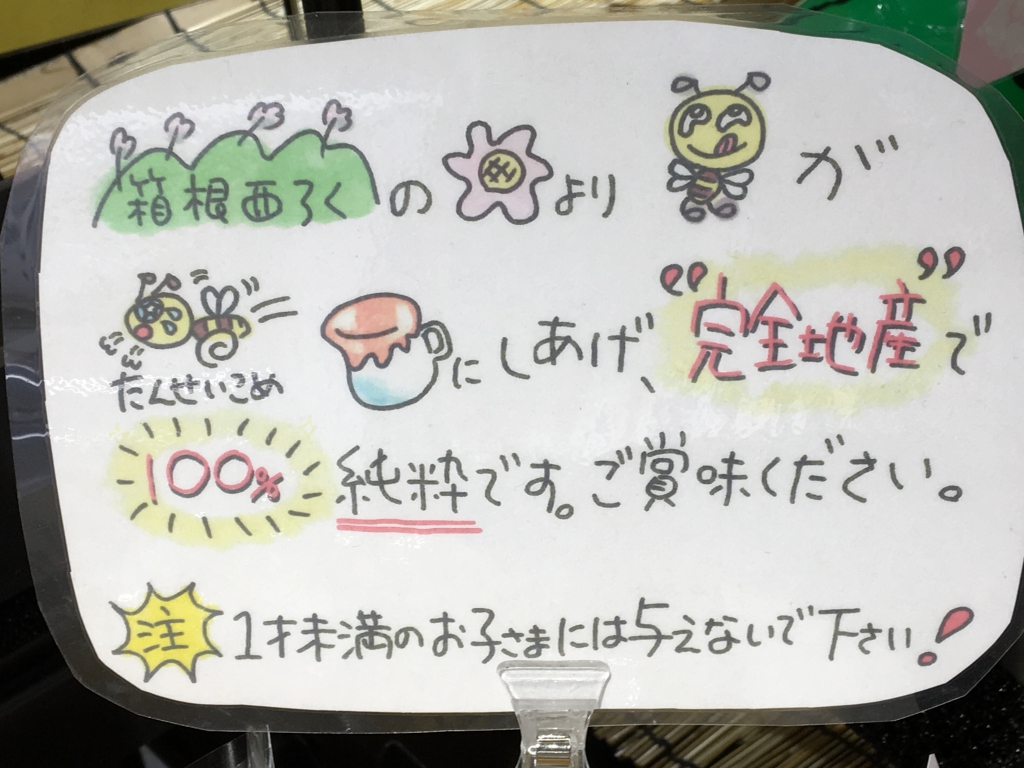 箱根西ろくのよりが
たんせいこめにしあげ、"完全地産"で
100%純粋です。ご賞味ください。
注 1才未満のお子さまには与えないで下さい!